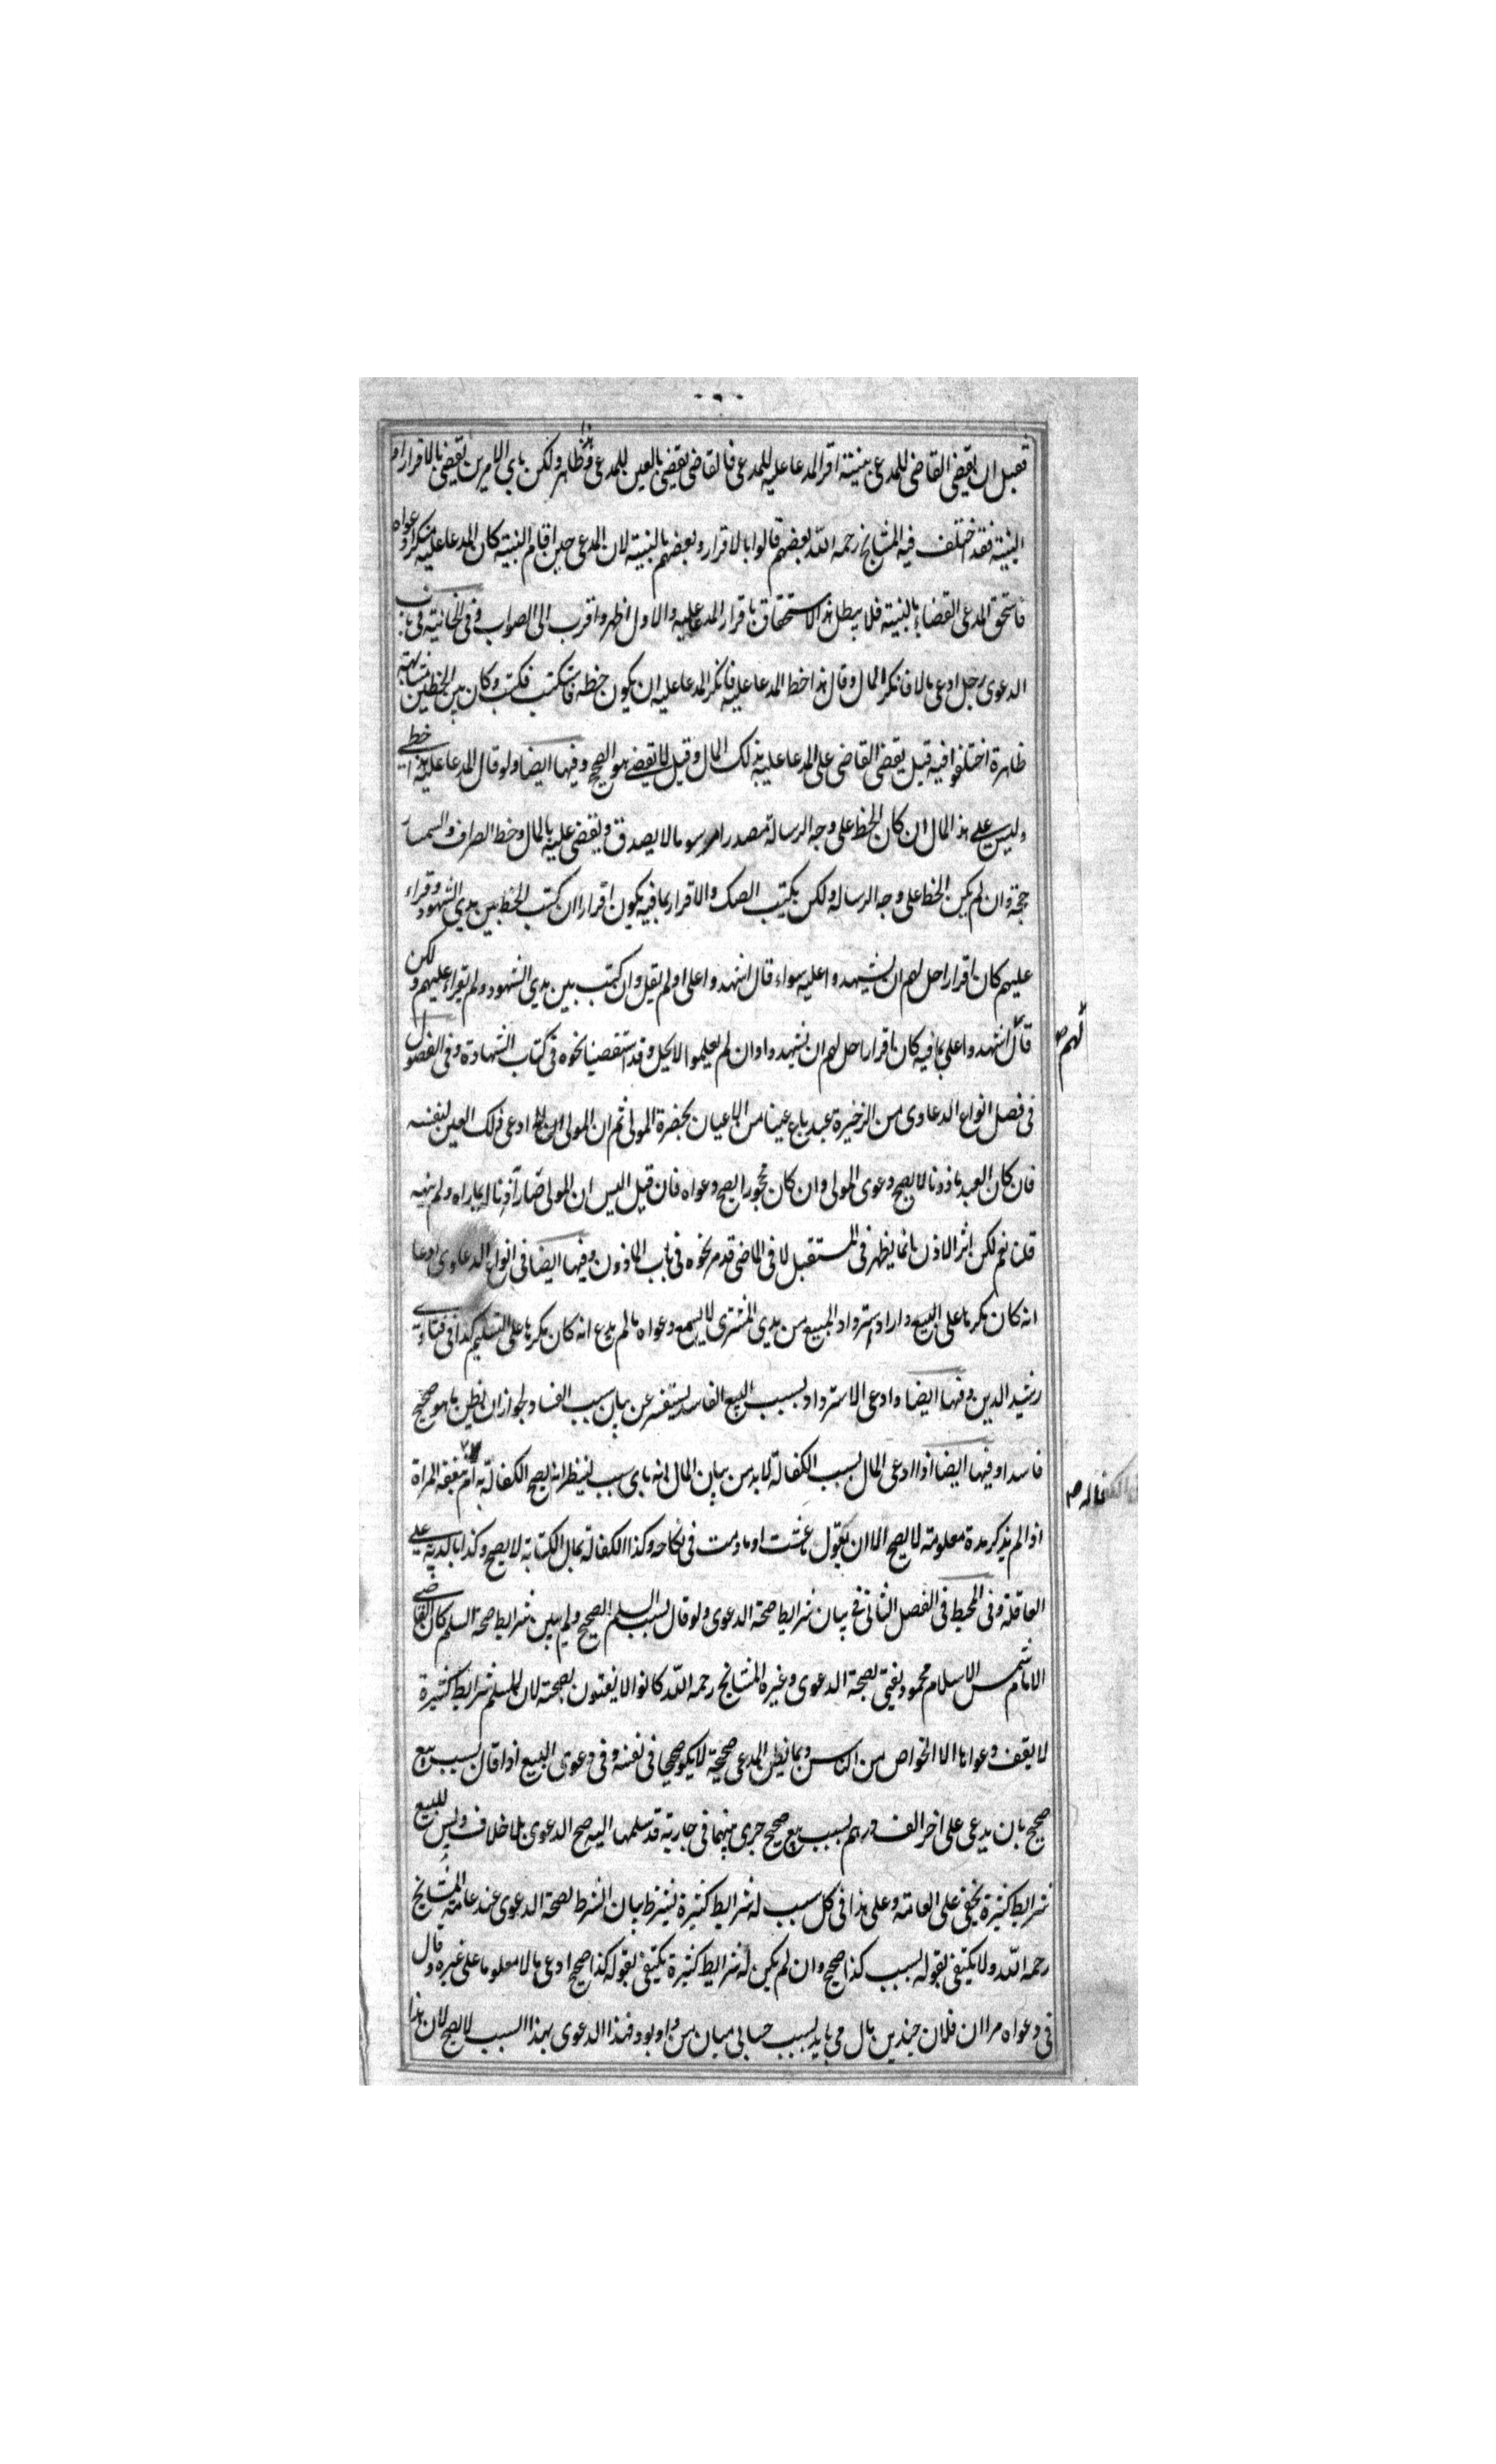 فقبل ان يقضى القاضى للمدعى ببينته اقر المدعا عليه للمدعى فالقاضى يقضى بالعين للمدعى وهذا ظاهر ولكن باى الامرين يقضى بالاقرار ام
البينة فقد اختلف فيه المشايخ رحمه الله بعضهم قالوا بالاقرار وبعضهم بالبينة لان المدعى حين اقام البينة كان المدعا عليه منكرا دعواه
فاستحق المدعى القضاء بالبينة فلا يبطل هذا الاستحقاق باقرار المدعا عليه والاول اظهر واقرب الى الصواب وفى الخانية فى باب
الدعوى رجل ادعى مالا فانكر المال وقال هذا خط المدعا عليه فانكر المدعا عليه ان يكون خطه فاستكتب فكتب وكان بين الخطين مشابهة
ظاهرة اختلفوا فيه قيل يقضى القاضى على المدعا عليه بذلك المال وقيل لا يقضى هو الصحيح وفيها ايضا ولو قال المدعا عليه هذا خطى
وليس على هذا المال ان كان الخط على وجه الرسالة مصدرا مرسوما لا يصدق ويقضى عليه بالمال وخط الصراف والسمسار
حجة وان لم يكن الخط على وجه الرسالة ولكن يكتب الصك والاقرار بما فيه يكون اقرارا ان كتب الخط بين يدى الشهود وقراء
عليهم كان اقرارا حل لهم ان يشهدوا عليه سواء قال اشهدوا على او لم يقل وان كتب بين يدى الشهود ولم يقراء عليهم ولكن
قال لهم اشهدوا على بما فيه كان اقرارا حل لهم ان يشهدوا وان لم يعلموا لا يحل وقد استقصينا نحوه فى كتاب الشهادة وفى الفصول
فى فصل انواع الدعاوى من الذخيرة عبد باع عينا من الاعيان بحضرة المولى ثم ان المولى ادعى ذلك العين لنفسه
فان كان العبد ماذونا لا يصح دعوى المولى وان كان محجورا يصح دعواه فان قيل اليس ان المولى صار آذنا لما راه ولم ينهه
قلنا نعم لكن اثر الاذن انما يظهر فى المستقبل لا فى الماضى قد مر نحوه فى باب الماذون وفيها ايضا فى انواع الدعاوى ادعا
انه كان مكرها على البيع واراد استرداد المبيع من يدى المشترى لا يسمع دعواه ما لم يدع انه كان مكرها على التسليم كذا فى فتاوى
رشيد الدين وفيها ايضا وادعى الاسترداد بسبب البيع الفاسد يستفسر عن بيان سبب الفساد لجواز ان يظن ما هو صحيح
فاسدا وفيها ايضا اذا ادعى المال بسبب الكفالة لابد من بيان المال انه باى سبب لينظر انه يصح الكفالة به ام نفقة المراة
اذا لم يذكر مدة معلومة لا يصح الا ان يقول ما عشت او ما دمت فى نكاحه وكذا الكفالة بمال الكتابة لا يصح وكذا بالدية على
العاقلة وفى المحيط فى الفصل الثانى فى بيان شرايط صحة الدعوى ولو قال بسبب السلم الصحيح ولم يبين شرايط صحة السلم كان القاضى
الامام شمس الاسلام محمود يفتى بصحة الدعوى وغيره المشايخ رحمه الله كانوا لا يفتون بصحته لان للسلم شرايط كثيرة
لا يقف دعواها الا الخواص من الناس وبما يظن المدعى صحيحة لا يكون صحيحا فى نفسه وفى دعوى البيع اذا قال بسبب بيع
صحيح بان يدعى على اخر الف درهم بسبب بيع صحيح جرى بينهما فى جارية قد سلمها اليه صح الدعوى بلا خلاف وليس للبيع
شرايط كثيرة يخفى على العامة وعلى هذا فى كل سبب له شرايط كثيرة يشترط بيان الشرط لصحة الدعوى عند عامة المشايخ
رحمه الله ولا يكتفى بقوله بسبب كذا صحيح وان لم يكن له شرايط كثيرة يكتفى بقوله كذا صحيح ادعى مالا معلوما على غيره وقال
فى دعواه مرا ان فلان چندين مال مى بايد بسبب حسابى ميان من و او بود فهذا الدعوى بهذا السبب لا يصح لان هذا
لهم ص